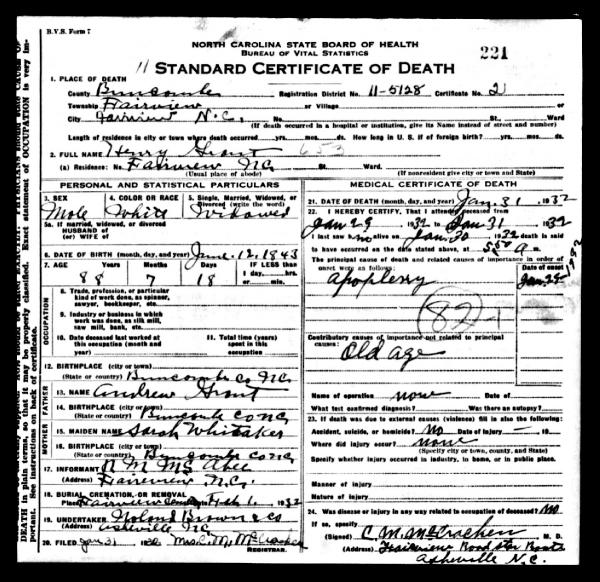 B.V.S. Form 7
NORTH CAROLINA STATE BOARD OF HEALTH
BUREAU OF VITAL STATISTICS
221
11 STANDARD CERTIFICATE OF DEATH
1. PLACE OF DEATH
County Buncombe Registration District No. 11-5128 Certificate No. 2
Township Fairview or Village
City Fairview N.C. No. St. Ward
(If death occurred in a hospital or institution, give its Name instead of street and number)
Length of residence in city or town where death occurred yrs. mos. ds. How long in U. S. if of foreign birth? yrs. mos. ds.
2. FULL NAME Henry Grant 653
(a) Residence: No. Fairview NC St. Ward.
(Usual place of abode) (If nonresident give city or town and State)
PERSONAL AND STATISTICAL PARTICULARS
3. SEX 4. COLOR OR RACE 5. Single, Married, Widowed, or Divorced (write the word)
Male White Widowed
5a. If married, widowed, or divorced
HUSBAND of
(or) WIFE of
6. DATE OF BIRTH (month, day, and year) June. 12, 1843
7. AGE Years Months Days IF LESS than
1 day, hrs.
or min.
88 7 18
OCCUPATION
8. Trade, profession, or particular kind of work done, as spinner, sawyer, bookkeeper, etc.
9. Industry or business in which work was done, as silk mill, saw mill, bank, etc.
10. Date deceased last worked at this occupation (month and year)
11. Total time (years) spent in this occupation
12. BIRTHPLACE (city or town)
(State or country) Buncombe Co NC.
FATHER
13. NAME Andrew Grant
14. BIRTHPLACE (city or town)
(State or country) Buncombe Co NC.
MOTHER
15. MAIDEN NAME Sarah Whitaker
16. BIRTHPLACE (city or town)
(State or country) Buncombe Co NC.
17. INFORMANT McAbee
(Address) Fairview N.C.
18. BURIAL, CREMATION, OR REMOVAL
Place Fairview Date Feb 1. 1932
19. UNDERTAKER Noland Brown & Co
Asheville NC
20. FILED Jan 31 1932 Mrs. C. M. McCracken
REGISTRAR.
MEDICAL CERTIFICATE OF DEATH
21. DATE OF DEATH (month, day, and year) Jan. 31, 1932
22. I HEREBY CERTIFY, That I attended deceased from
Jan 29 1932 to Jan 31 1932
I last saw alive on Jan 30 1932 death is said
to have occurred on the date stated above, at 5 50 a m.
The principal cause of death and related causes of importance in order of onset were as follows:
Date of onset
Apoplexy Jan 29 1932
(82-1)
Contributory causes of importance not related to principal cause:
Old age
Name of operation none Date of
What test confirmed diagnosis? Was there an autopsy?
23. If death was due to external causes (violence) fill in also the following:
Accident, suicide, or homicide? No Date of injury 19
Where did injury occur? none
(Specify city or town, county, and State)
Specify whether injury occurred in industry, in home, or in public place.
Manner of injury
Nature of injury
24. Was disease or injury in any way related to occupation of deceased? No
If so, specify
(Signed) C. M. McCracken M. D.
(Address) Fairview Road Star Route
Asheville N.C.